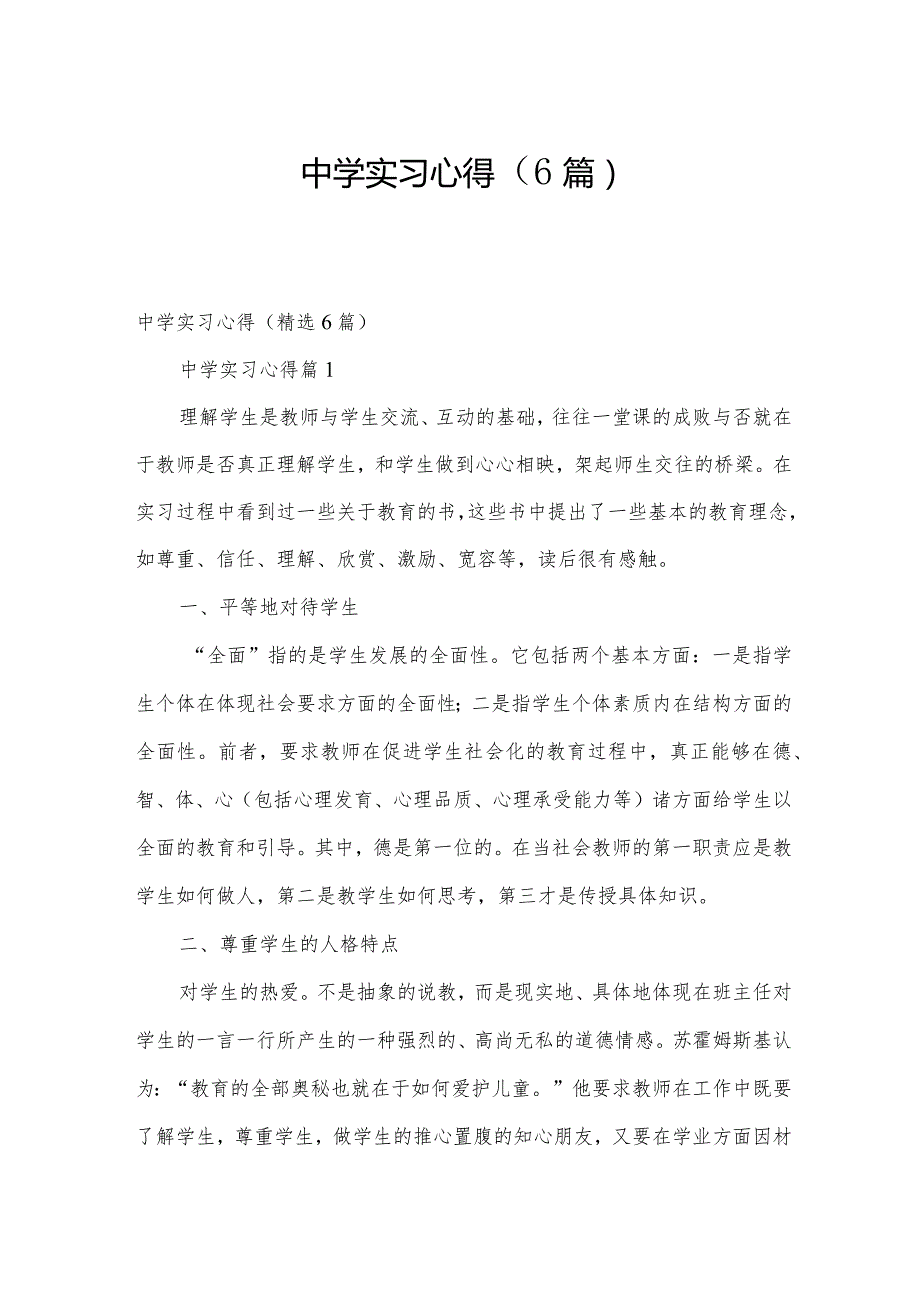 中学实习心得（6篇）
中学实习心得（精选6篇）
中学实习心得篇1
理解学生是教师与学生交流、互动的基础，往往一堂课的成败与否就在
于教师是否真正理解学生，和学生做到心心相映，架起师生交往的桥梁。在
实习过程中看到过一些关于教育的书，这些书中提出了一些基本的教育理念，
如尊重、信任、理解、欣赏、激励、宽容等，读后很有感触。
一、平等地对待学生
“全面”指的是学生发展的全面性。它包括两个基本方面：一是指学
生个体在体现社会要求方面的全面性；二是指学生个体素质内在结构方面的
全面性。前者，要求教师在促进学生社会化的教育过程中，真正能够在德、
智、体、心（包括心理发育、心理品质、心理承受能力等）诸方面给学生以
全面的教育和引导。其中，德是第一位的。在当社会教师的第一职责应是教
学生如何做人，第二是教学生如何思考，第三才是传授具体知识。
二、尊重学生的人格特点
对学生的热爱。不是抽象的说教，而是现实地、具体地体现在班主任对
学生的一言一行所产生的一种强烈的、高尚无私的道德情感。苏霍姆斯基认
为：“教育的全部奥秘也就在于如何爱护儿童。”他要求教师在工作中既要
了解学生，尊重学生，做学生的推心置腹的知心朋友，又要在学业方面因材